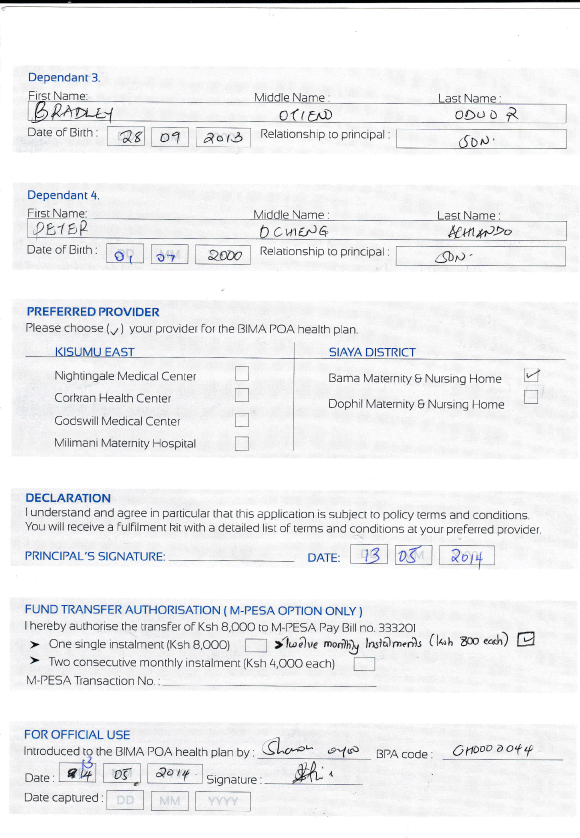 Dependant 3.
First Name: Middle Name : Last Name :
BRADLEY OTIENO ODUOR
Date of Birth : 28 09 2013 Relationship to principal : SON.
Dependant 4.
First Name: Middle Name : Last Name :
PETER OCHIENG
Date of Birth : 01 07 2000 Relationship to principal : SON.
PREFERRED PROVIDER
Please choose (✓) your provider for the BIMA POA health plan.
KISUMU EAST SIAYA DISTRICT
Nightingale Medical Center Bama Maternity & Nursing Home ✓
Corkran Health Center Dophil Maternity & Nursing Home
Godswill Medical Center
Milimani Maternity Hospital
DECLARATION
I understand and agree in particular that this application is subject to policy terms and conditions.
You will receive a fulfilment kit with a detailed list of terms and conditions at your preferred provider.
PRINCIPAL'S SIGNATURE: DATE: 13 05 2014
FUND TRANSFER AUTHORISATION ( M-PESA OPTION ONLY )
I hereby authorise the transfer of Ksh 8,000 to M-PESA Pay Bill no. 333201
➤ One single instalment (Ksh 8,000) ➤ twelve monthly Instalments (ksh 800 each) ✓
➤ Two consecutive monthly instalment (Ksh 4,000 each)
M-PESA Transaction No. :
FOR OFFICIAL USE
Introduced to the BIMA POA health plan by : Sharon oyoo BPA code : GH000 0044
Date : 13 05 2014 Signature :
Date captured : DD MM YYYY